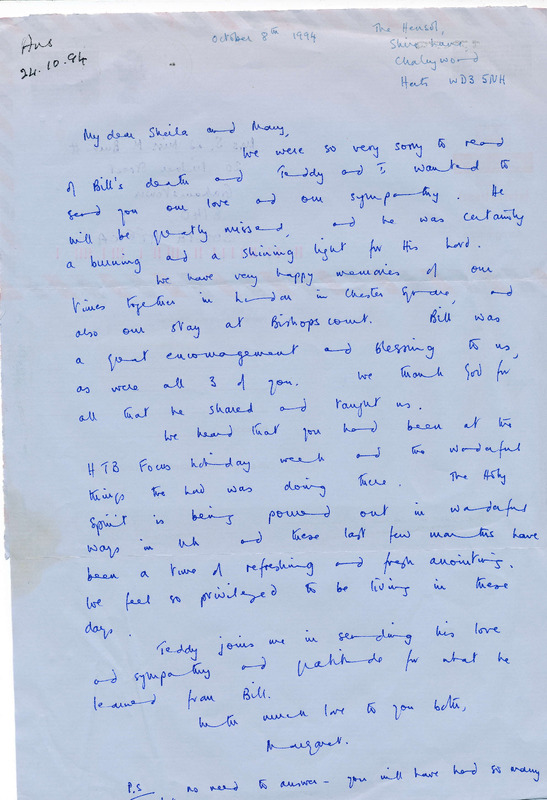 Ans
24.10.94
October 8th 1994
The Hensol,
Shire Lane,
Chorleywood
Herts WD3 5NH
My dear Sheila and Mary,
We were so very sorry to read
of Bill's death and Teddy and I wanted to
send you our love and our sympathy. He
will be greatly missed, and he was certainly
a burning and a shining light for His Lord.
We have very happy memories of our
times together in London in Chester Square, and
also our stay at Bishopscourt. Bill was
a great encouragement and blessing to us,
as were all 3 of you. We thank God for
all that he shared and taught us.
We heard that you had been at the
HTB Focus holiday week and the wonderful
things the Lord was doing there. The Holy
Spirit is being poured out in wonderful
ways in UK and these last few months have
been a time of refreshing and fresh anointing.
We feel so privileged to be living in these
days.
Teddy joins me in sending his love
and sympathy and gratitude for what he
learned from Bill.
With much love to you both,
Margaret.
P.S no need to answer - you will have had so many